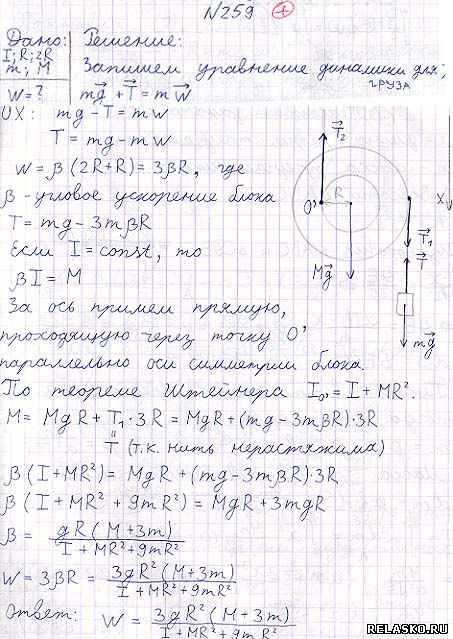 N259 +
Дано: Решение:
I; R; 2R
m; M
Запишем уравнение динамики для
груза:
W = ? mg⃗ + T⃗ = m w⃗
OX: mg - T = mw
T = mg - mw
w = β (2R + R) = 3βR, где
β - угловое ускорение блока
T = mg - 3mβR
Если I = const, то
βI = M
За ось примем прямую,
проходящую через точку O'
параллельно оси симметрии блока.
По теореме Штейнера I₀' = I + MR².
M = MgR + T₁ · 3R = MgR + (mg - 3mβR) · 3R
=
T (т.к. нить нерастяжима)
β (I + MR²) = MgR + (mg - 3mβR) · 3R
β (I + MR² + 9mR²) = MgR + 3mgR
β = gR (M + 3m) / I + MR² + 9mR²
W = 3βR = 3gR² (M + 3m) / I + MR² + 9mR²
Ответ: W = 3gR² (M + 3m) / I + MR² + 9mR²
T⃗₂
R
O'
X
T⃗₁
T⃗
Mg⃗
mg⃗
RELASKO.RU